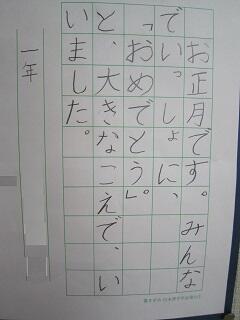 お正月です。みんな
でいっしょに、
「おめでとう」。
と、大きなこえで、い
いました。
一年